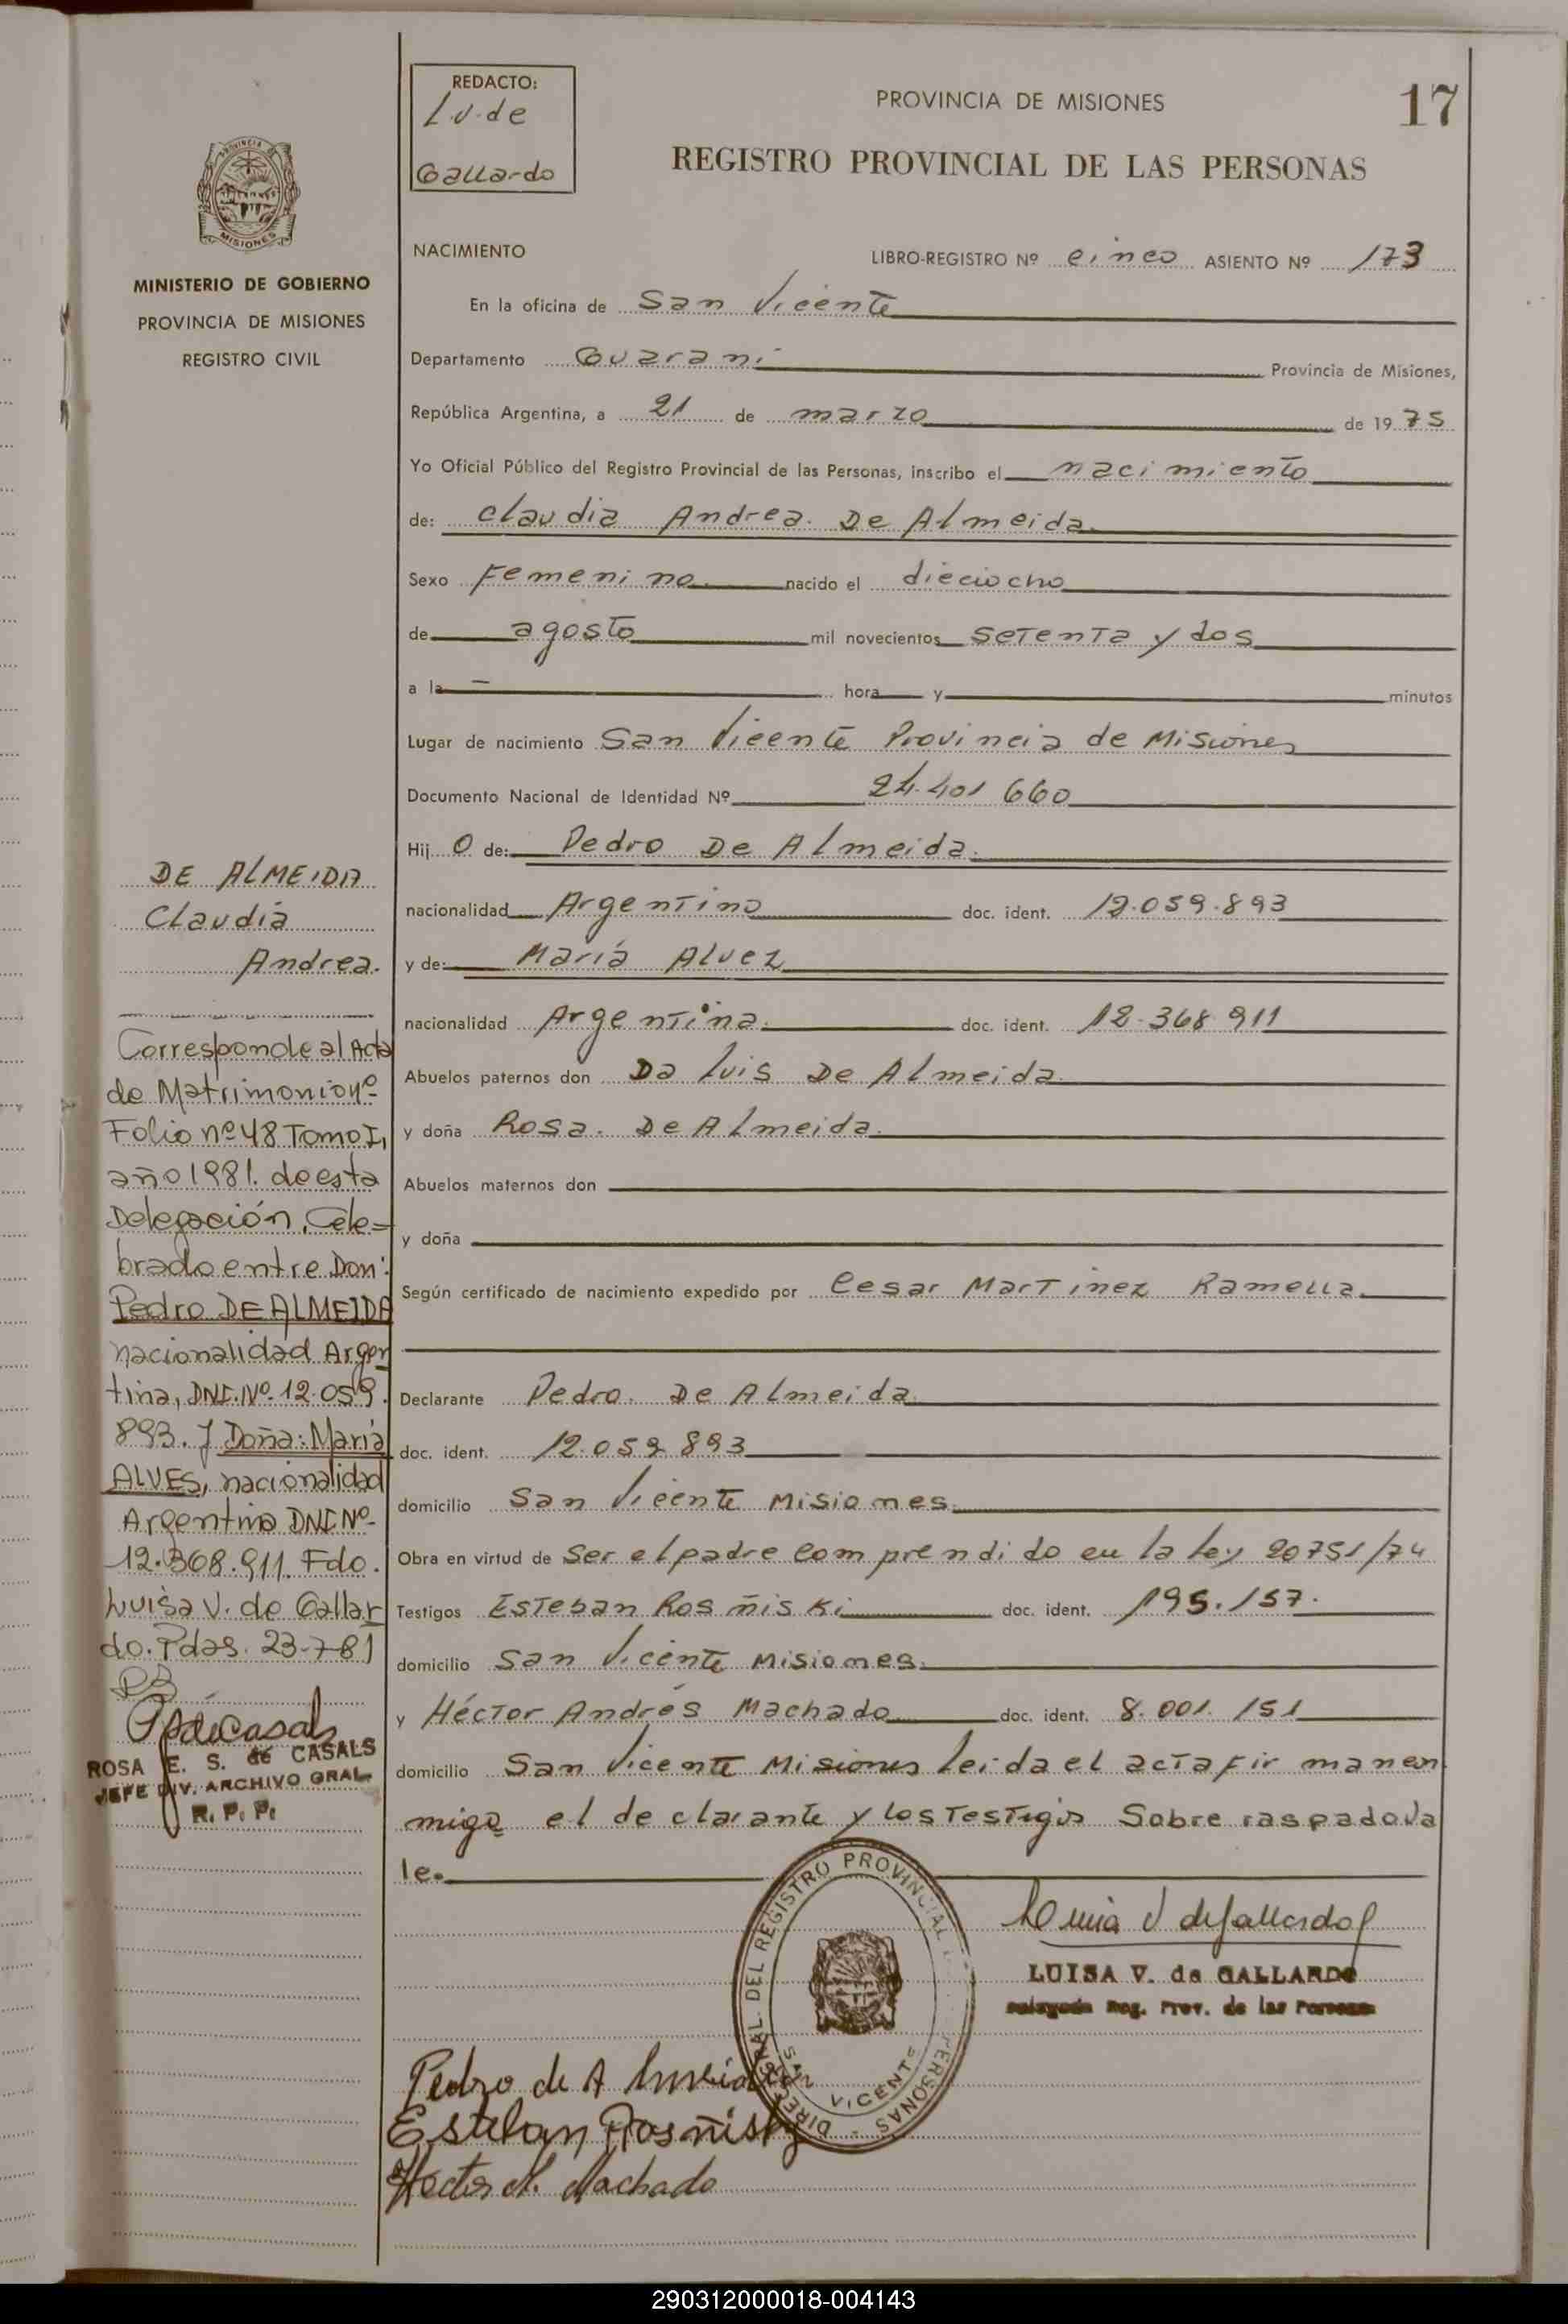 17
REDACTO:
L.V. de
Gallardo
PROVINCIA DE MISIONES
REGISTRO PROVINCIAL DE LAS PERSONAS
PROVINCIA DE
MISIONES
MINISTERIO DE GOBIERNO
PROVINCIA DE MISIONES
REGISTRO CIVIL
NACIMIENTO LIBRO-REGISTRO Nº cinco ASIENTO Nº 173
En la oficina de San Vicente
Departamento Guaraní Provincia de Misiones,
República Argentina, a 21 de marzo de 1975
Yo Oficial Público del Registro Provincial de las Personas, inscribo el nacimiento
de: Claudia Andrea. De Almeida
Sexo Femenino nacido el dieciocho
de agosto mil novecientos setenta y dos
a la — hora y minutos
Lugar de nacimiento San Vicente Provincia de Misiones
Documento Nacional de Identidad Nº 24.401 660
Hij o de: Pedro De Almeida.
nacionalidad Argentino doc. ident. 12.059.893
y de: María Alvez
nacionalidad Argentina. doc. ident. 12.368 911
Abuelos paternos don Da Luis De Almeida
y doña Rosa. De Almeida.
Abuelos maternos don
y doña
Según certificado de nacimiento expedido por Cesar Martinez Ramella
Declarante Pedro. De Almeida
doc. ident. 12.059 893
domicilio San Vicente Misiones.
Obra en virtud de Ser el padre comprendido en la Ley 20751/74
Testigos Esteban Rosñiski doc. ident. 195.157.
domicilio San Vicente Misiones.
y Héctor Andrés Machado doc. ident. 8.001.151
domicilio San Vicente Misiones leida el acta firman con
migo el declarante y los testigos Sobre raspado va
le.
DE ALMEIDA
Claudia
Andrea.
Corresponde al Acta
de Matrimonio nº
Folio nº 48 Tomo I,
año 1981. de esta
Delegación. Cele=
brado entre Don:
Pedro DE ALMEIDA
nacionalidad Argen
tina, DNI. Nº. 12.059.
893. y Doña: María
ALVES, nacionalidad
Argentina DNI Nº-
12.368.911. Fdo.
Luisa V. de Gallar
do. Pdas. 23-7-81
ROSA E. S. de CASALS
JEFE DIV. ARCHIVO GRAL.
R. P. P.
Luisa V de Gallardo
LUISA V. de GALLARDO
Delegada Reg. Prov. de las Personas
DIREC GRAL. DEL REGISTRO PROVINCIAL PERSONAS
SAN VICENTE
Pedro de Almeida
Esteban Rosñisky
Hector A. Machado
290312000018-004143